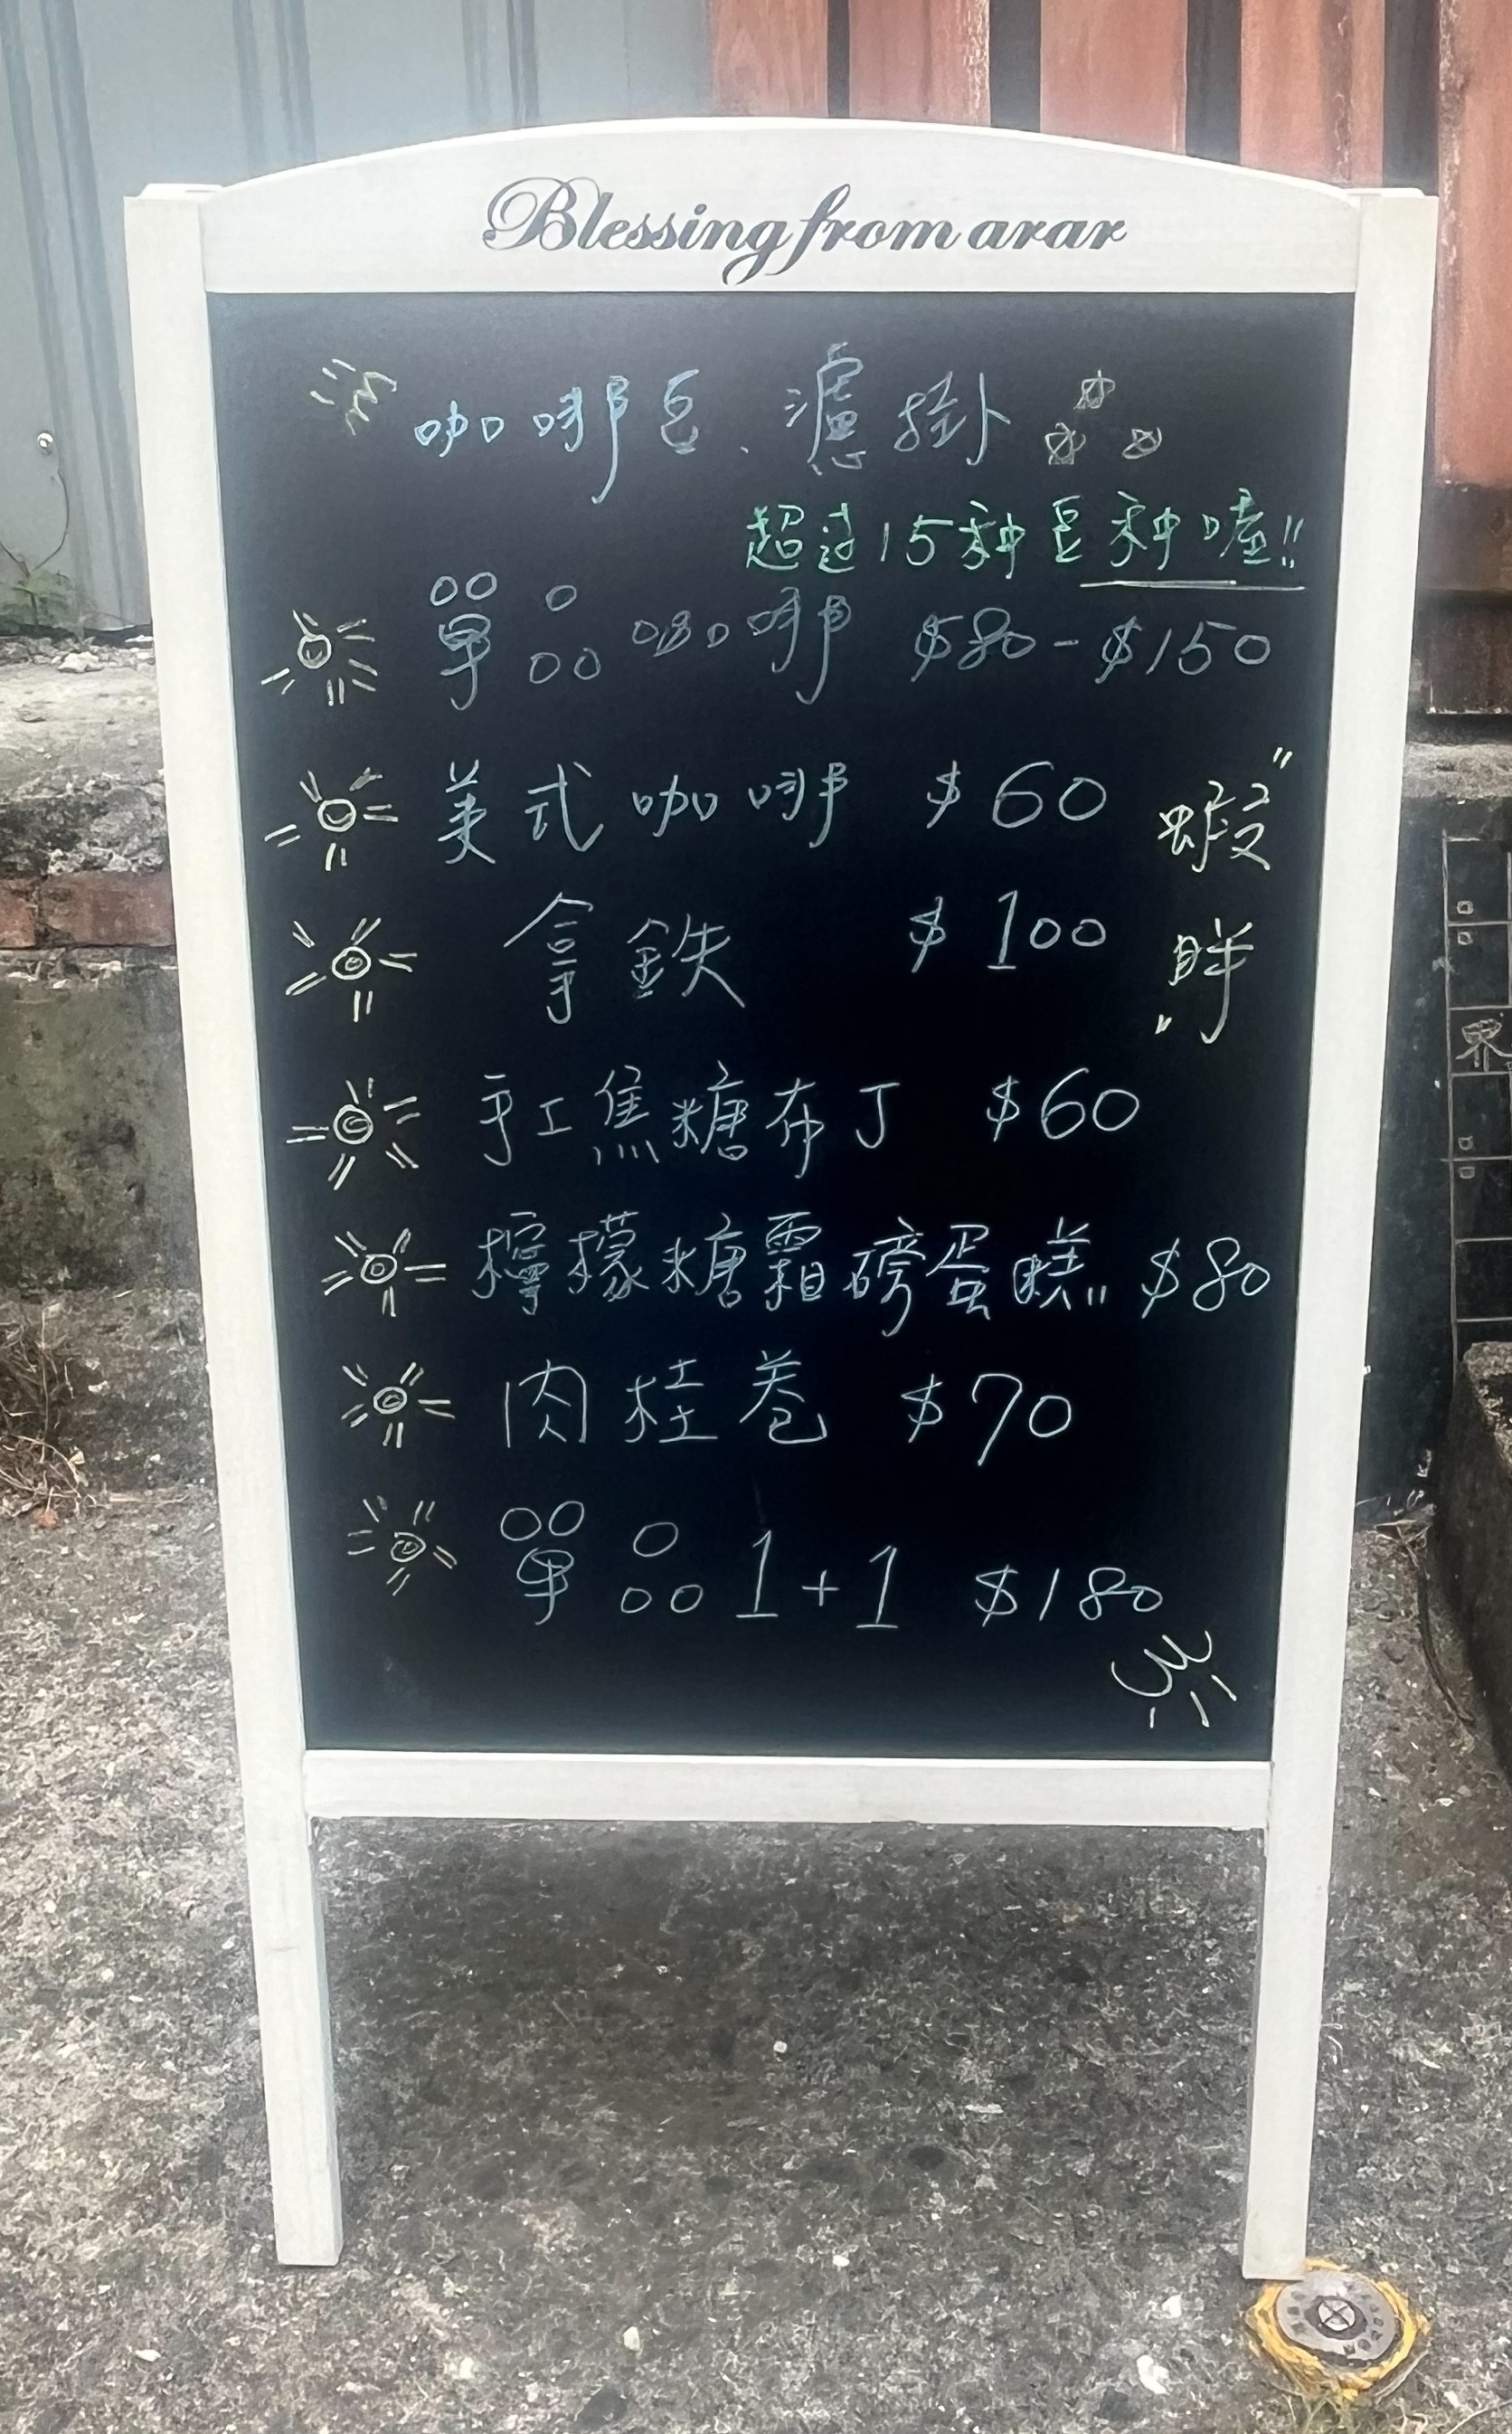 Blessing from arar
咖啡豆、濾掛
超過15種豆種喳!!
單品咖啡 $80-$150
美式咖啡 $60
拿鐵 $100
蝦咩
手工焦糖布丁 $60
檸檬糖霜磅蛋糕!! $80
肉桂卷 $70
單品1+1 $180
界